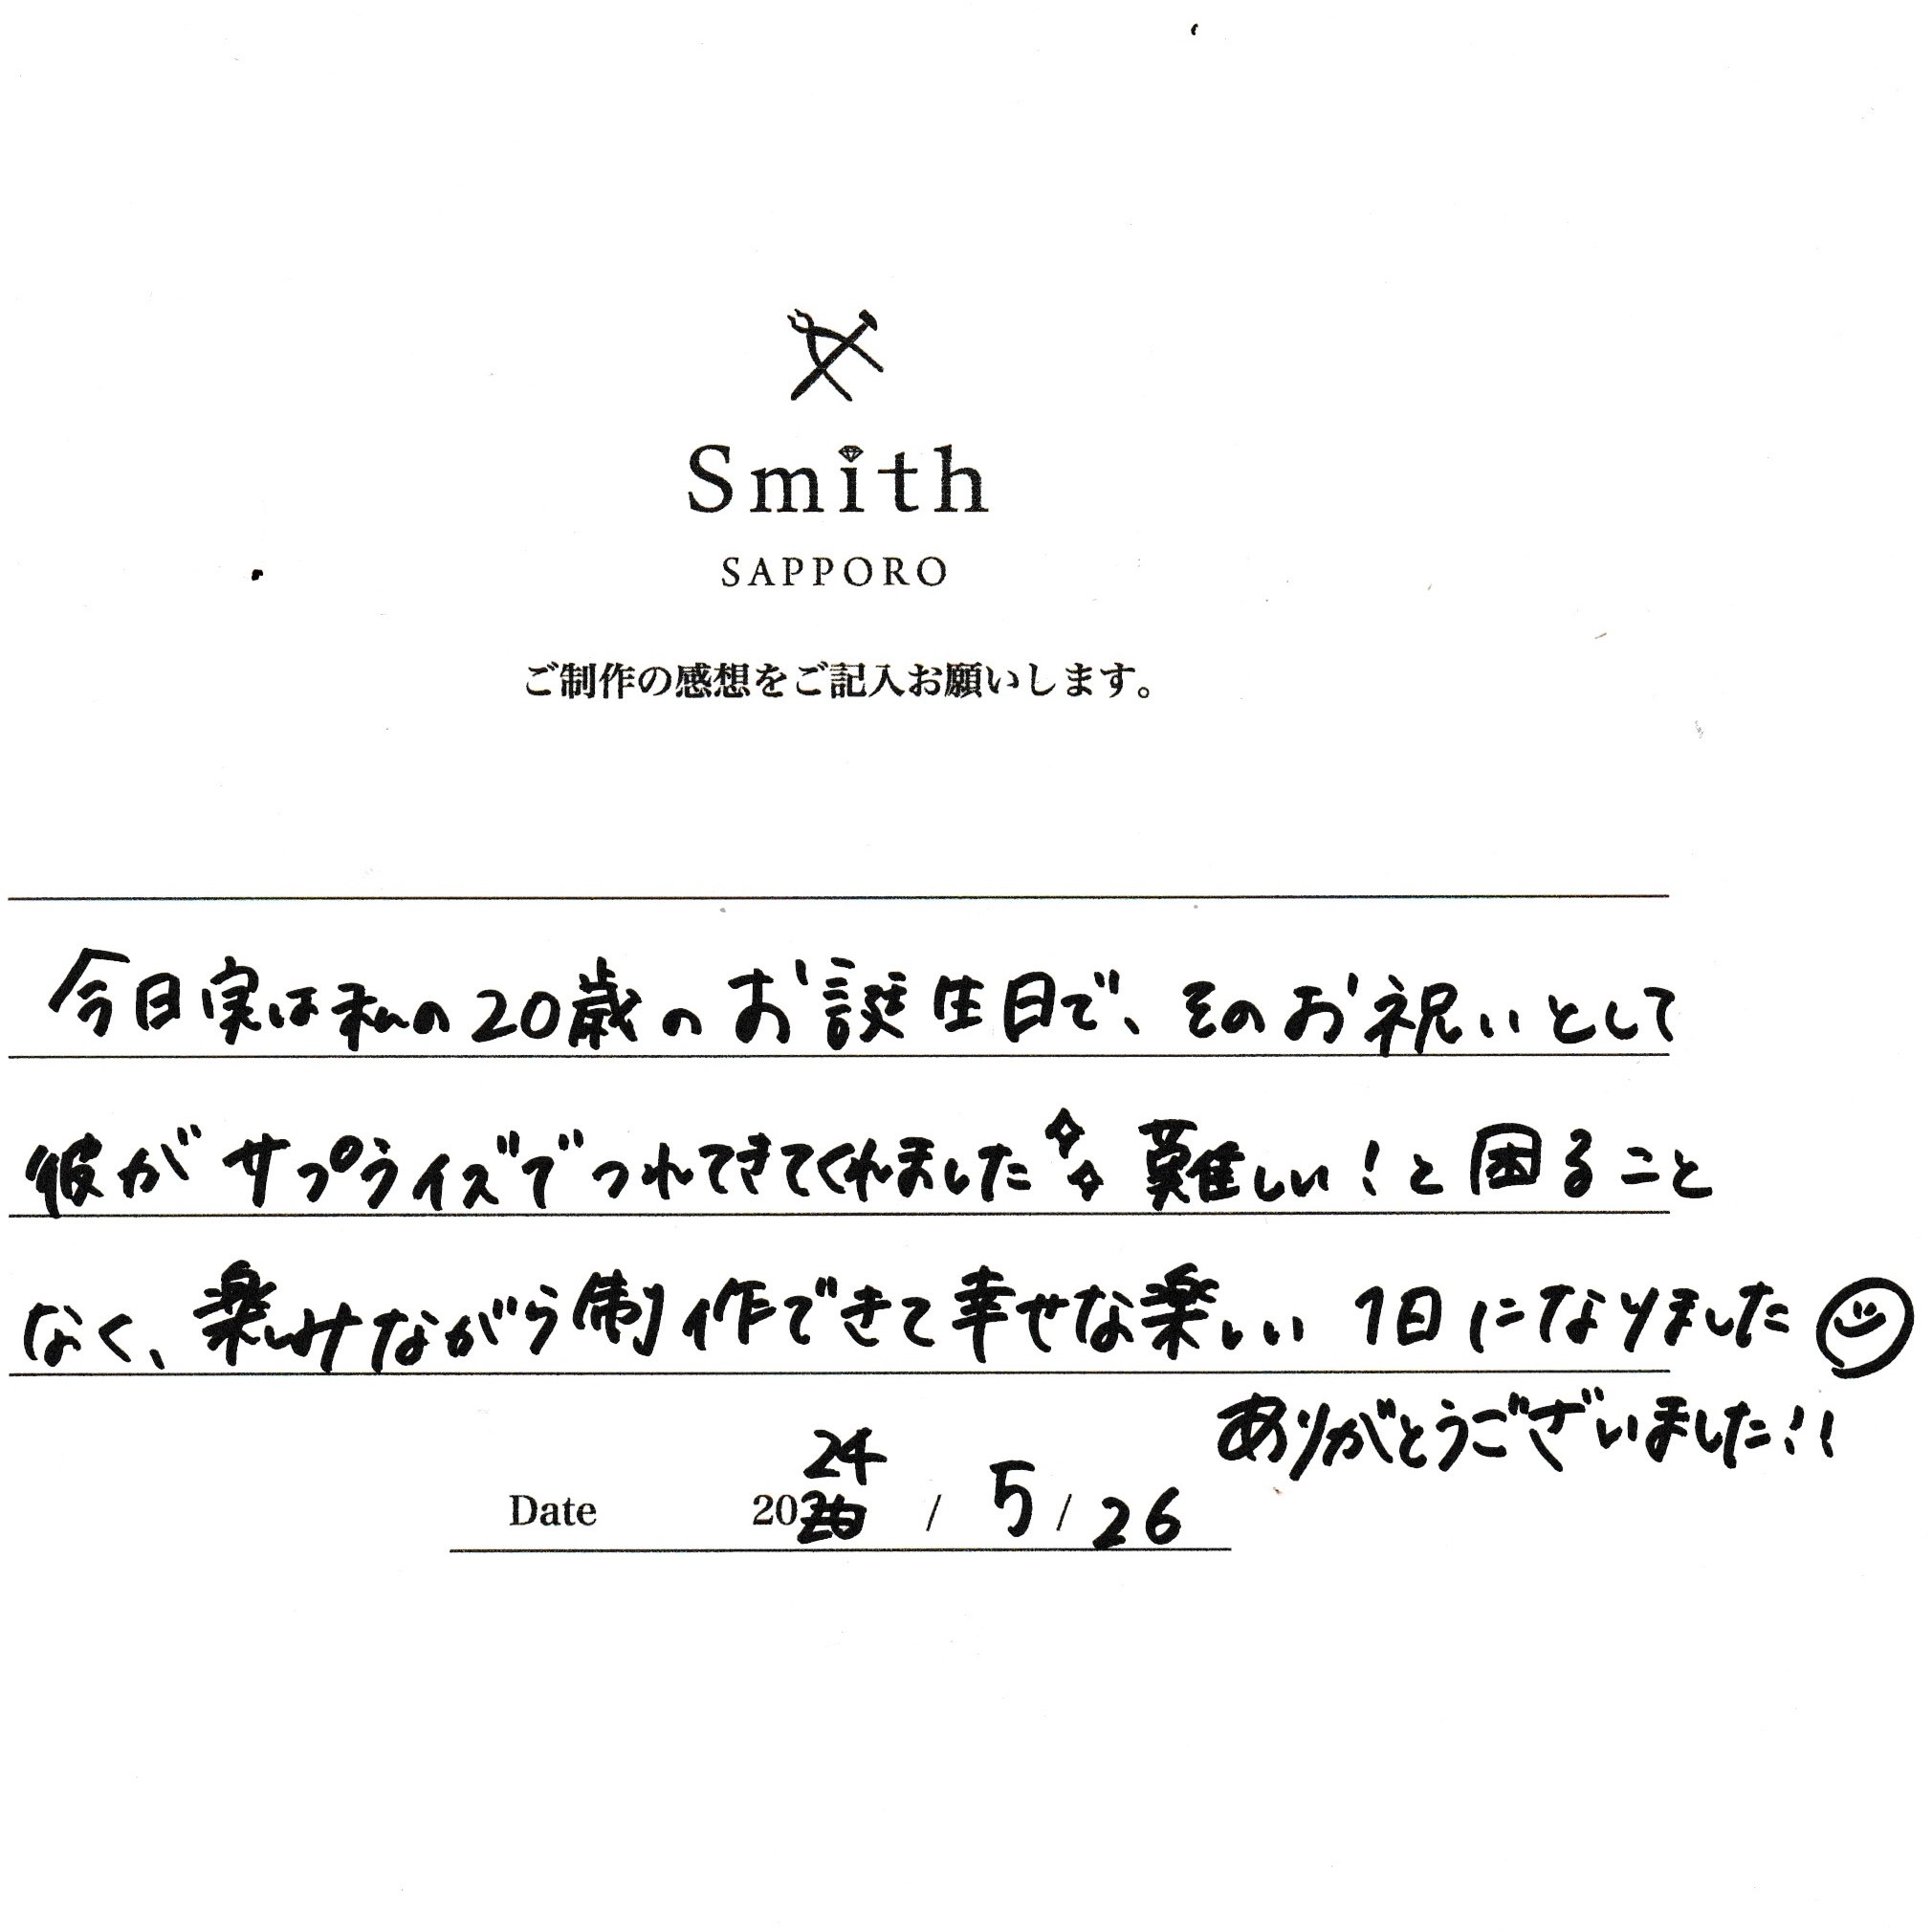 Smith
SAPPORO
ご制作の感想をご記入お願いします。
今日実は私の20歳のお誕生日で、そのお祝いとして
彼がサプライズでつれてきてくれました 難しい!と困ること
なく、楽しみながら制作できて幸せな楽しい1日になりました
ありがとうございました!!
24
Date 20 / 5 / 26